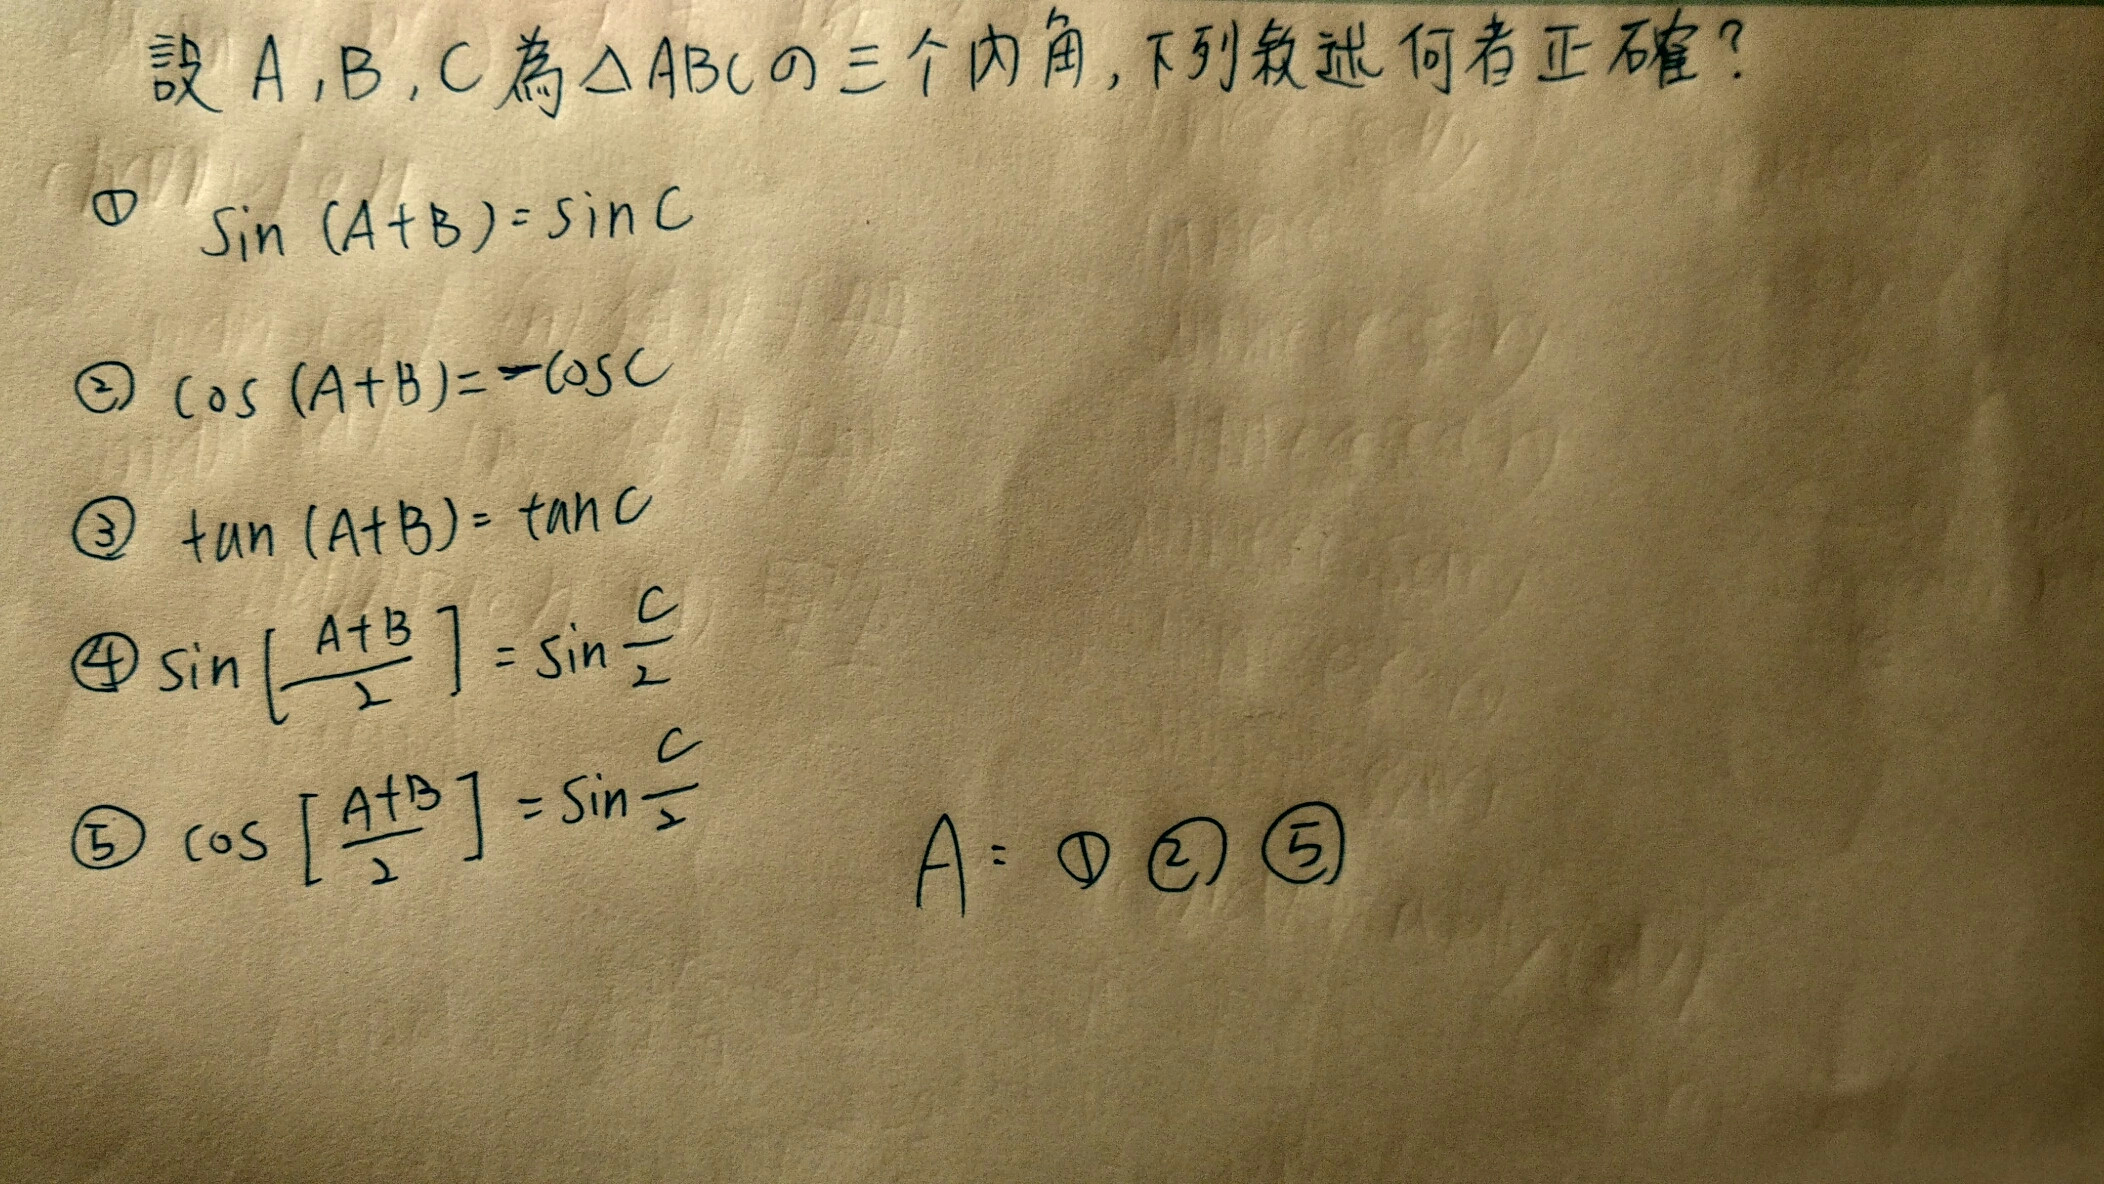 設 A,B,C為△ABCの三个内角,下列敘述何者正確?
① sin (A+B)=sin C
② cos (A+B)=-cosC
③ tan (A+B)= tan C
④ sin [A+B/2] = sin C/2
⑤ cos [A+B/2] = sin C/2
A= ① ② ⑤